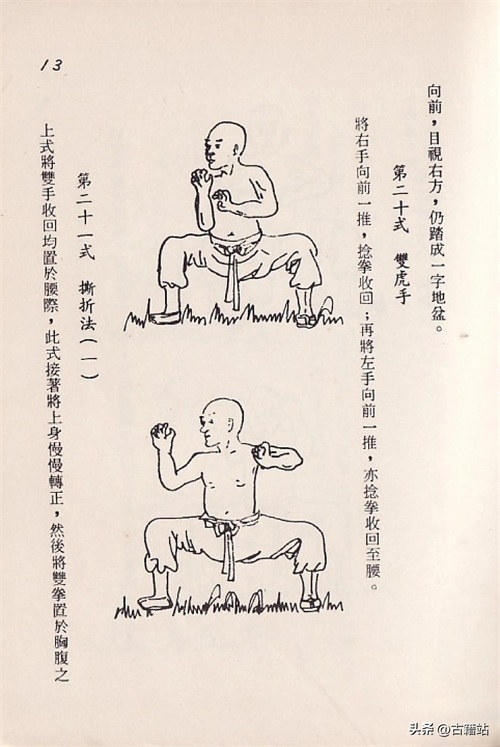 13
向前，目視右方，仍踏成一字地盆。
第二十式　雙虎手
將右手向前一推，捻拳收回；再將左手向前一推，亦捻拳收回至腰。
第二十一式　撕折法（一）
上式將雙手收回均置於腰際，此式接著將上身慢慢轉正，然後將雙拳置於胸腹之
头条 @古籍站